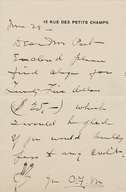 15 RUE DES PETITS CHAMPS
June 29 -
Dear Mr Peet -
Enclosed please
find cheque for
Twenty five dollars
($25 -) which
I would be glad
if you would kindly
to my credit